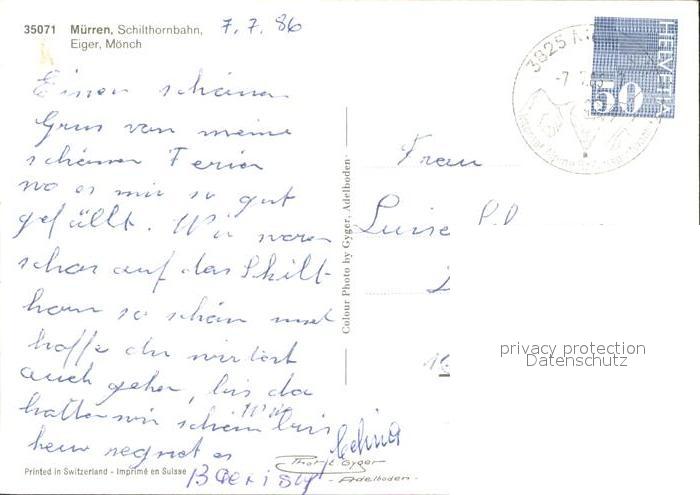 35071 Mürren, Schilthornbahn,
Eiger, Mönch
7. 7. 86
Einen schönen
Grus von meine
schönen Ferien
wo es mir so gut
gefällt. Wir waren
schon auf das Skilt-
horn so schön und
hoffe du wirtest
auch gehen, bis da
hatten wir schön
heur regnet es
Colour Photo by Gyger, Adelboden
3825
-7.7.86
HELVETIA
50
Frau
Luise
privacy protection
Datenschutz
Printed in Switzerland - Imprimé en Suisse
Gyger
- Adelboden -